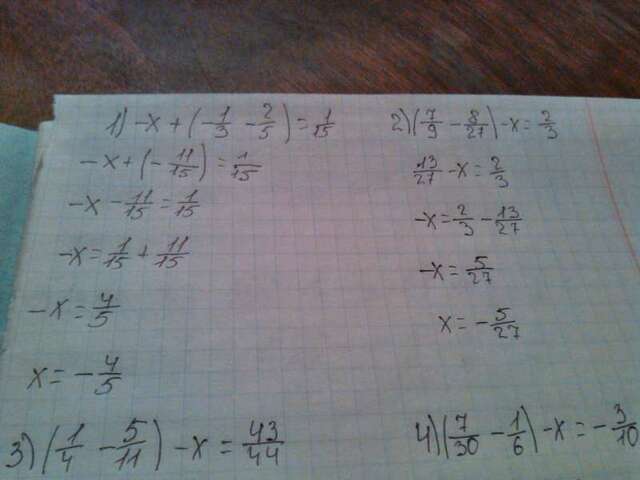 1) -x + (-1/3 - 2/5) = 1/15
-x + (-11/15) = 1/15
-x - 11/15 = 1/15
-x = 1/15 + 11/15
-x = 4/5
x = -4/5
2) (7/9 - 8/27) - x = 2/3
13/27 - x = 2/3
-x = 2/3 - 13/27
-x = 5/27
x = -5/27
3) (1/4 - 5/11) - x = 43/44
4) (7/30 - 1/6) - x = -3/10